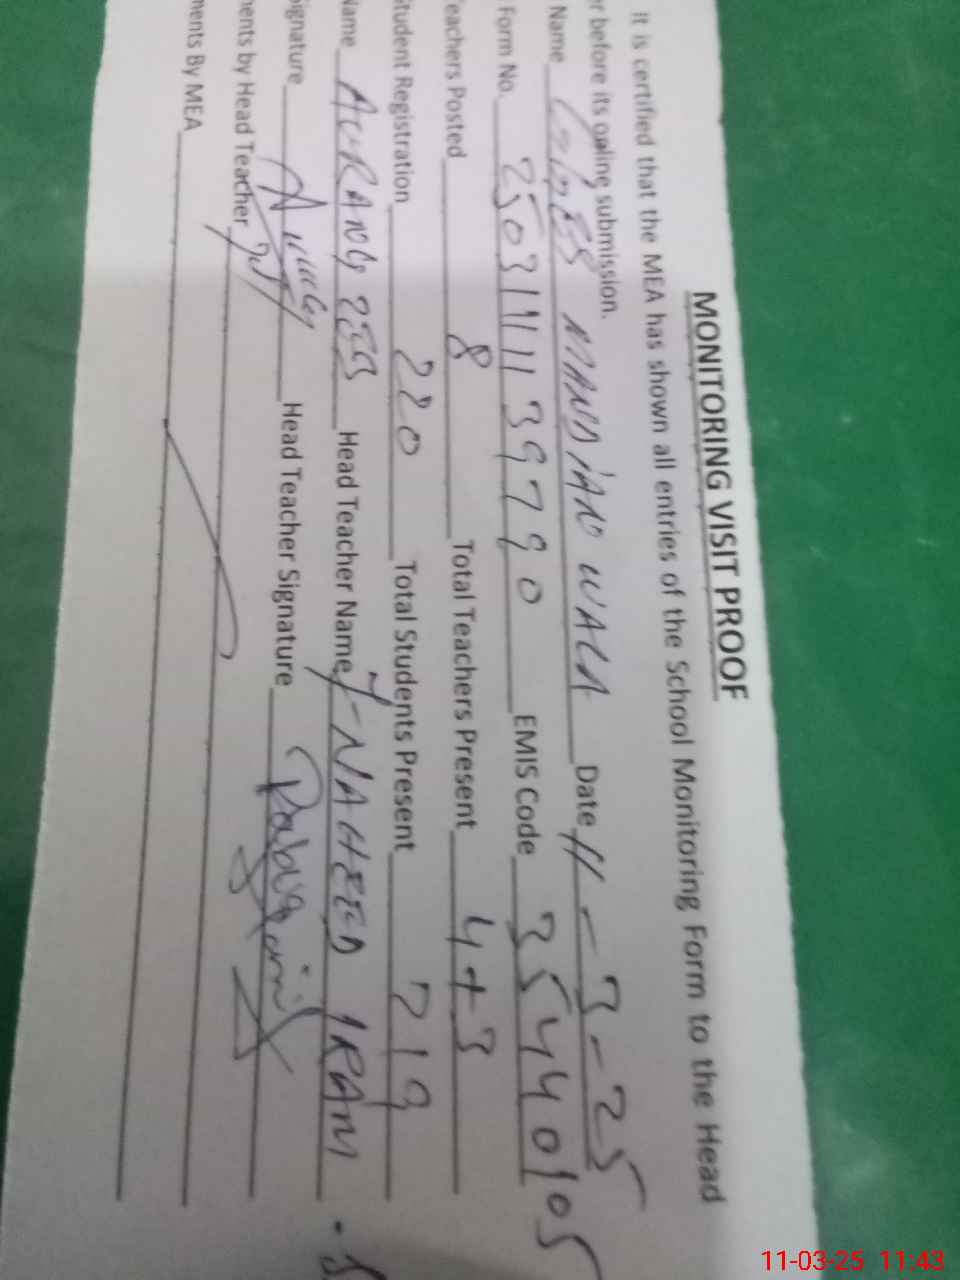 MONITORING VISIT PROOF
It is certified that the MEA has shown all entries of the School Monitoring Form to the Head
r before its online submission.
Name MANDIAN WALA Date 11-3-25
Form No. 2503111139790 EMIS Code 35440105
eachers Posted 8 Total Teachers Present 4+3
tudent Registration 220 Total Students Present 219
Name AURANG ZEB Head Teacher Name NAHEED IRAM
Signature Head Teacher Signature
ments by Head Teacher
ments By MEA
11-03-25 11:43